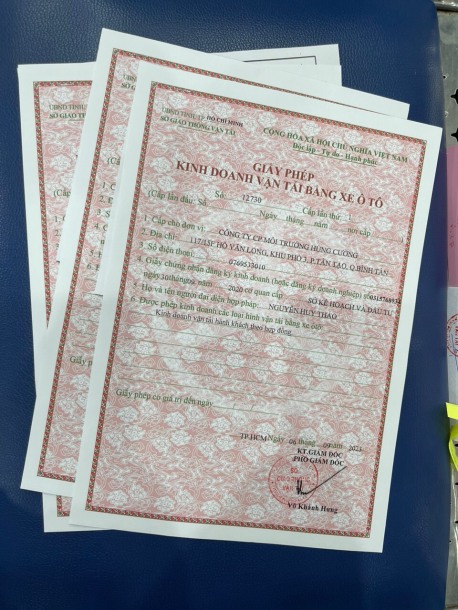 UBND TỈNH, TP HỒ CHÍ MINH
SỞ GIAO THÔNG VẬN TẢI
CỘNG HÒA XÃ HỘI CHỦ NGHĨA VIỆT NAM
Độc lập - Tự do - Hạnh phúc
GIẤY PHÉP
KINH DOANH VẬN TẢI BẰNG XE Ô TÔ
Số: 12730 Cấp lần thứ:
(Cấp lần đầu: Số Ngày tháng năm nơi cấp )
1. Cấp cho đơn vị: CÔNG TY CP MÔI TRƯỜNG HƯNG CƯỜNG
2. Địa chỉ: 117/15F HỒ VĂN LONG, KHU PHỐ 3, P.TÂN TẠO, Q.BÌNH TÂN
3. Số điện thoại: 0769533010
4. Giấy chứng nhận đăng ký kinh doanh (hoặc đăng ký doanh nghiệp) số
ngày 30 tháng 2020 cơ quan cấp SỞ KẾ HOẠCH VÀ ĐẦU TƯ
5. Họ và tên người đại diện hợp pháp: NGUYỄN HUY THẢO
6. Được phép kinh doanh các loại hình vận tải bằng xe ô tô:
Kinh doanh vận tải hành khách theo hợp đồng.
Giấy phép có giá trị đến ngày
TP.HCM Ngày 06 tháng 09 năm 2023
KT.GIÁM ĐỐC
PHÓ GIÁM ĐỐC
Võ Khánh Hưng